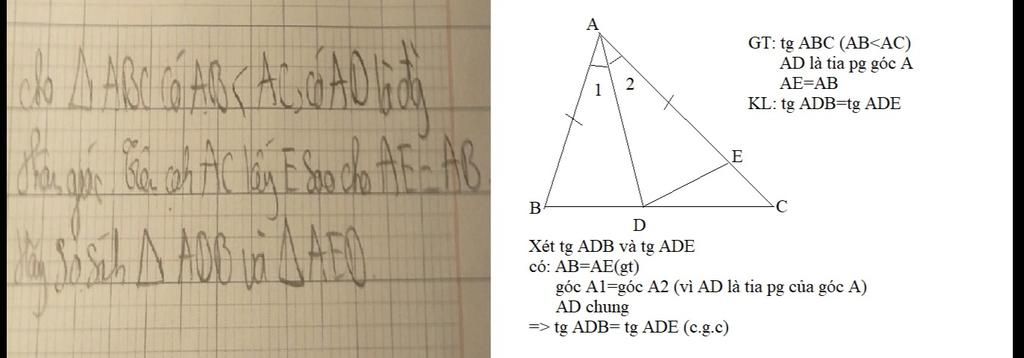 cho Δ ABC có AB < AC, có AD là đg
phân giác. Trên cạh AC lấy E sao cho AE = AB.
Hãy so sáh Δ ADB và Δ AED.
A
1
2
E
B
D
C
GT: tg ABC (AB<AC)
AD là tia pg góc A
AE=AB
KL: tg ADB=tg ADE
Xét tg ADB và tg ADE
có: AB=AE(gt)
góc A1=góc A2 (vì AD là tia pg của góc A)
AD chung
=> tg ADB= tg ADE (c.g.c)